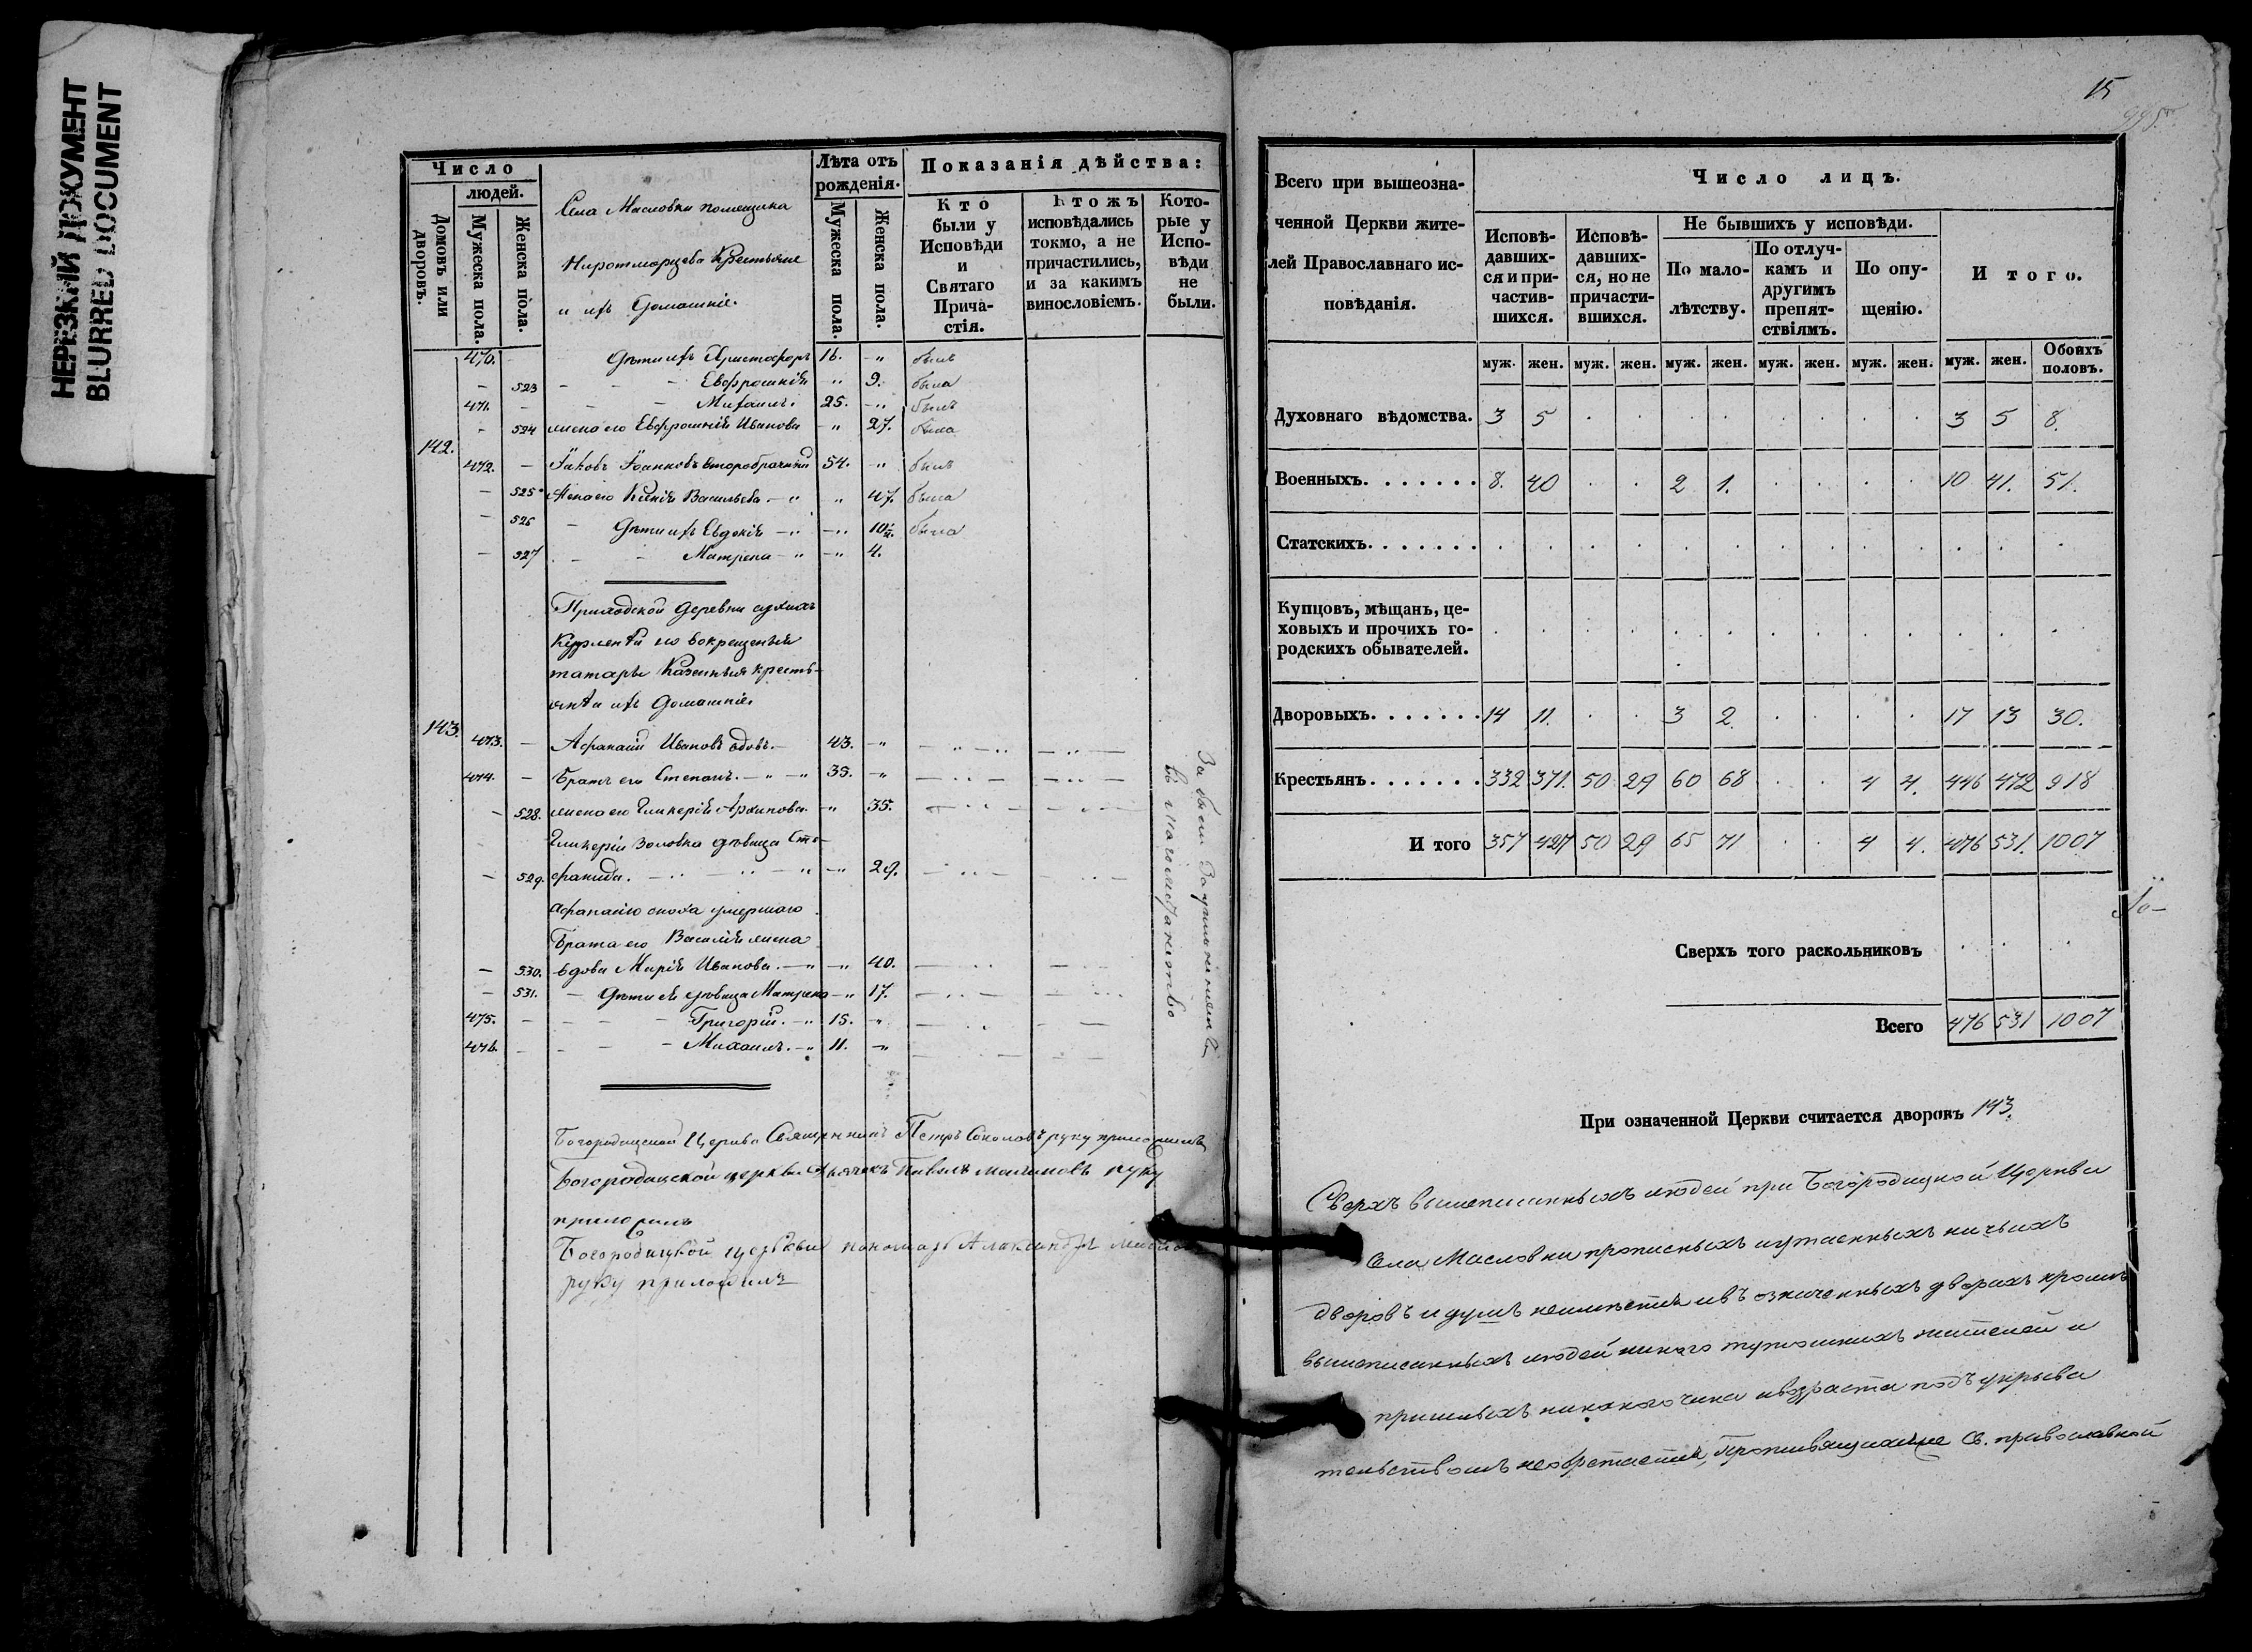 НЕРЕЗКИЙ ДОКУМЕНТ
BLURRED DOCUMENT
Число
людей.
Домовъ или дворовъ.
Мужеска пола.
Женска пола.
Села Масловки помещика
Крестьяне
и ихъ домашніе.
Лѣта отъ рожденія.
Мужеска пола.
Женска пола.
Показанія дѣйства:
Кто были у Исповѣди и Святаго Прича-стія.
Ктожъ исповѣдались токмо, а не причастились, и за какимъ винословіемъ.
Кото-рые у Испо-вѣди не были.
470. - Дѣти ихъ Христофоръ 16. -" былъ
- 523 - - - Евфросинія " 9. была
471. - - - Михаилъ. 25. -" былъ
- 524 жена его Евфросинія Иванова -" 27. была
142.
472. - Іаковъ второбрачный 54. -" былъ
- 525 Жена его Ксенія Васильева - " " 47. была
- 526 - Дѣти ихъ Евдокія -" -" 10½. была
- 527 - - Матрена -" -" 4.
Приходской деревни
новокрещеные
татары Казенныя кресть-
яне и ихъ домашніе
143.
473. - Афанасій Ивановъ вдовъ. - 43. -"
474. - Братъ его Степанъ. -" -" 35. -"
- 528. жена его Гликерія Архипова -" 35.
Гликеріи золовка дѣвица Сте-
- 529. фанида. -" 29.
Афанасію сноха умершаго
Брата его Василія жена
- 530. вдова Марія Иванова. -" -" 40.
- 531. - Дѣти ея дѣвица Матрена -" 17.
475. - - - Григорій. -" 15. -"
476. - - - Михаилъ. -" 11. -"
въ магометанство
Богородицкой Церкви Священникъ Петръ Соколовъ руку приложилъ
Богородицкой церкви дьячекъ Павелъ руку
приложилъ
Богородицкой церкви пономарь
руку приложилъ
15
Всего при вышеозна-
ченной Церкви жите-
лей Православнаго ис-
повѣданія.
Число лицъ.
Исповѣ-давших-ся и при-частив-шихся.
Исповѣ-давших-ся, но не причасти-вшихся.
Не бывшихъ у исповѣди.
По мало-лѣтству.
По отлуч-камъ и другимъ препят-ствіямъ.
По опу-щенію.
И того.
муж. жен. муж. жен. муж. жен. муж. жен. муж. жен. муж. жен. Обоихъ половъ.
Духовнаго вѣдомства. 3 5 . . . . . . . . 3 5 8.
Военныхъ. . . . . . . 8. 40 . . 2 1. . . . . 10 41. 51.
Статскихъ. . . . . . .
Купцовъ, мѣщанъ, це-
ховыхъ и прочихъ го-
родскихъ обывателей.
Дворовыхъ. . . . . . . 14 11. . . 3 2 . . . . 17 13 30.
Крестьянъ. . . . . . . 332 371. 50 29 60 68 . . 4 4. 446 472 918
И того 357 427 50 29 65 71 . . 4 4. 476 531. 1007
Сверхъ того раскольниковъ . . .
Всего 476 531 1007
При означенной Церкви считается дворовъ 143.
Сверхъ вышеписанныхъ людей при Богородицкой Церкви
Села Масловки прописныхъ и утаенныхъ ничьихъ
дворовъ и душъ неимѣется и въ означенныхъ дворахъ кромѣ
вышеписанныхъ людей никого тутошнихъ жителей и
пришлыхъ никакого чина и возраста подъ укрыва
тельствомъ необрѣтается, Противящихся Св. православной